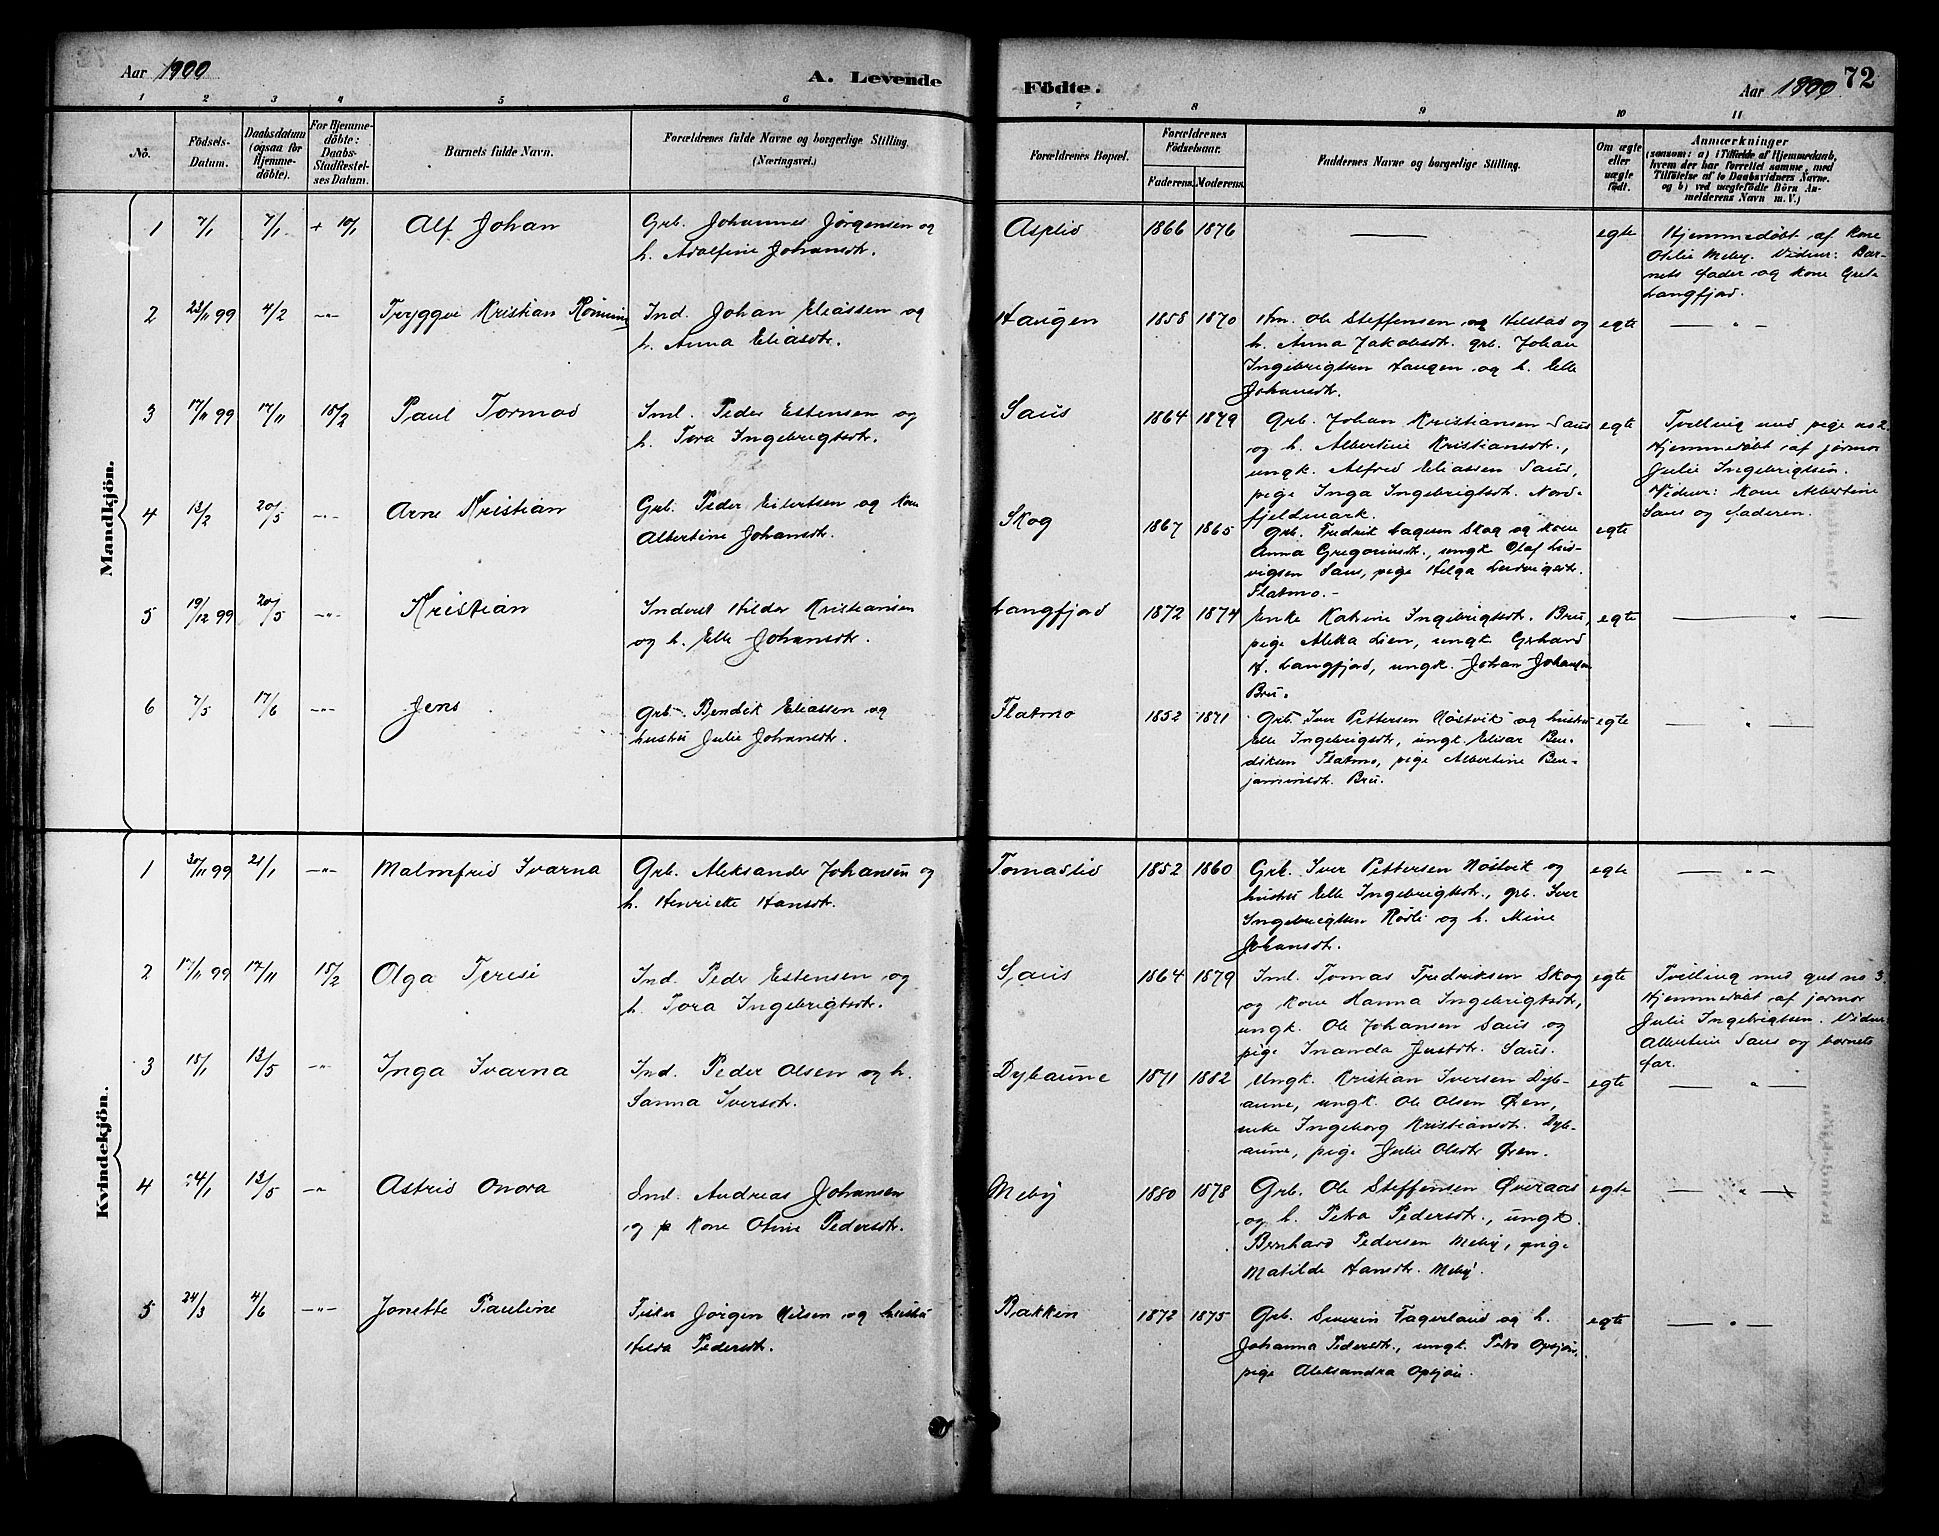 Aar 1900
A. Levende
Födte.
Aar 1900
72
1 2 3 4 5 6 7 8 9 10 11
No.
Födsels-
Datum.
Daabsdatum
(ogsaa for
Hjemme-
döbte).
For Hjemme-
döbte:
Daabs-
Stadfæstel-
ses Datum.
Barnets fulde Navn.
Forældrenes fulde Navne og borgerlige Stilling.
(Næringsvei.)
Forældrenes Bopæl.
Forældrenes
Födselsaar.
Faderens. Moderens.
Faddernes Navne og borgerlige Stilling.
Om ægte
eller
uægte
födt.
Anmærkninger
(saasom: a) i Tilfælde af Hjemmedaab,
hvem der har forrettet samme, med
Tilföielse af to Daabsvidners Navne,
og b) ved uægtefödte Börn An-
melderens Navn m. V.)
Mandkjön.
1 7/1 7/1 + 10/1 Alf Johan
Grb. Johannes Jørgensen og
h. Adolfine Johansdt.
Asplid 1866 1876 — egte
Hjemmedøbt af Kone
Otelie Meby. Vidner: Bar-
nets fader og kone Grete
Langfjord.
2 23/11 99 4/2 -"- Tryggve Kristian Rønning
Ind. Johan Eliassen og
h. Anna Eliasdt.
Haugen 1858 1870
Hm. Ole Steffensen og Hilstad og
h. Anna Jakobsdt. grb. Johan
Ingebrigtsen Haugen og h. Elle
Johansdt.
egte — " —
3 17/11 99 17/11 18/2 Paul Tormod
Ind. Peder Estensen og
h. Tora Ingebrigtsdt.
Saus 1864 1879
Grb. Johan Kristiansen Saus
og h. Albertine Kristiansdt.,
ungk. Alfred Eliassen Saus,
pige Inga Ingebrigtsdt. Nord-
fjeldmark.
egte
Tvilling med pige no 2.
Hjemmedøbt af jormor
Julie Ingebrigtsen.
Vidner: kone Albertine
Saus og faderen.
4 13/2 20/5 -"- Arne Kristian
Grb. Peder Eilertsen og kone
Albertine Johansdt.
Skog 1867 1865
Grb. Fredrik Aagesen Skog og kone
Anna Gregoriusdt., ungk. Olaf Lud-
vigsen Saus, pige Helga Ludvigsdt.
Flatmo.-
egte
5 19/12 99 20/5 -"- Kristian
Inderst Hilder Kristiansen
og h. Elle Johansdt.
Langfjord 1872 1874
Enke Katrine Ingebrigtsdt. Bru,
pige Aleka Lien, ungk. Gerhard
H. Langfjord, ungk. Johan Johansen
Bru.
egte — " —
6 7/5 17/6 -"- Jens
Grb. Bendik Eliassen og
hustru Julie Johansdt.
Flatmo 1852 1871
Grb. Iver Pettersen Nøstvik og hustru
Elle Ingebrigtsdt, ungk. Elisar Ben-
diksen Flatmo, pige Albertine Ben-
jaminsdt. Bru.
egte — " —
Kvindekjön.
1 30/11 99 21/1 -"- Malmfrid Ivarna
Grb. Aleksander Johansen og
h. Henriette Hansdt.
Tomaslid 1852 1860
Grb. Iver Pettersen Nøstvik og
hustru Elle Ingebrigtsdt., grb. Iver
Ingebrigtsen Rødli og h. Mine
Johansdt.
egte — " —
2 17/11 99 17/11 18/2 Olga Terese
Ind. Peder Estensen og
h. Tora Ingebrigtsdt.
Saus 1864 1879
Ind. Tomas Fredriksen Skog
og kone Hanna Ingebrigtsdt,
ungk. Ole Johansen Saus og
pige Inanda Justdt. Saus.
egte
Tvilling med gut no 3.
Hjemmedøbt af jormor
Julie Ingebrigtsen. Vidner
Albertine Saus og barnets
far.
3 18/1 13/5 -"- Inga Ivarna
Ind. Peder Olsen og h.
Sanna Iversdt.
Dybaune 1871 1882
Ungk. Kristian Iversen Dyb-
aune, ungk. Ole Olsen Øren,
enke Ingeborg Kristiansdt. Dyb-
aune, pige Julie Olsdt Øren.
egte — " —
4 24/1 13/5 -"- Astrid Onora
Ind. Andreas Johansen
og kone Oline Pedersdt.
Meby 1880 1878
Grb. Ole Steffensen Øveraas
og h. Petra Pedersdt., ungk.
Bernhard Pedersen Meby, pige
Matilde Hansdt. Meby.
egte — " —
5 24/3 4/6 -"- Jonette Pauline
Fisker Jørgen Nilsen og hustru
Hilda Pedersdt.
Bakken 1872 1875
Grb. Severin Fagerland og h.
Johanna Pedersdt., ungk. Petro Opsjøn,
pige Aleksandra Opsjøn.
egte — " —